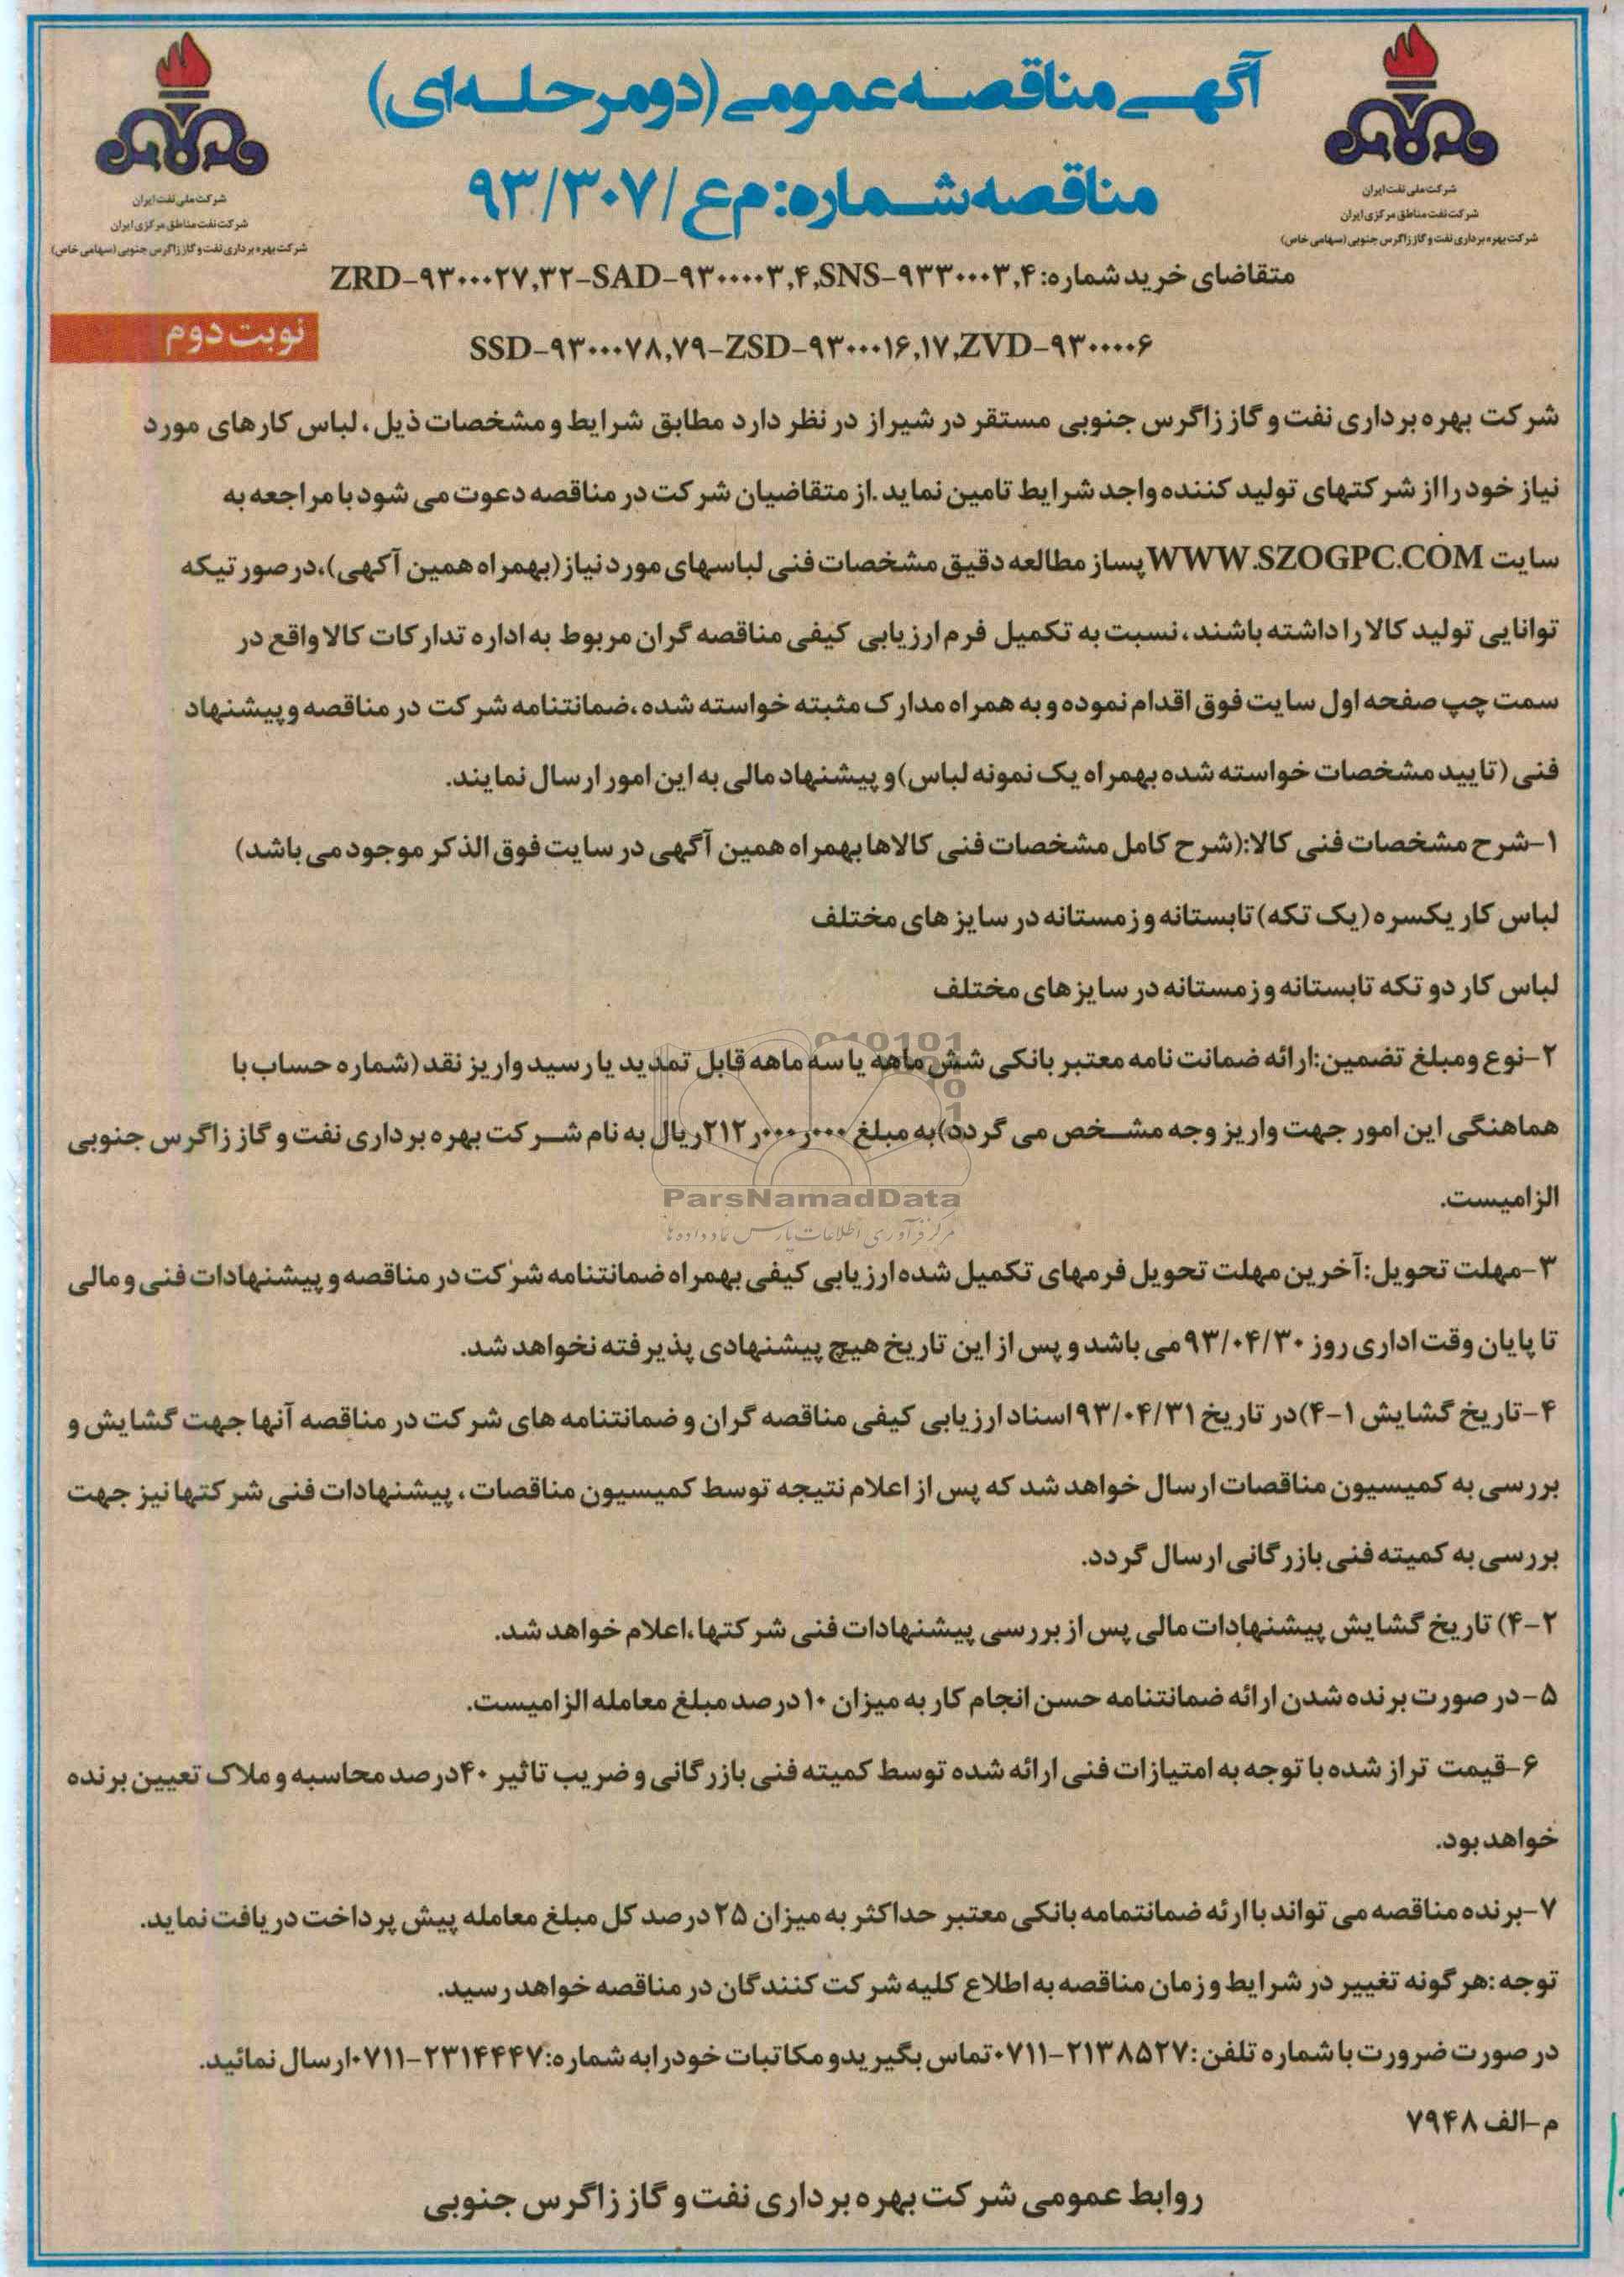 آگهی مناقصه عمومی (دو مرحله ای)
مناقصه شماره: م ع /۹۳/۳۰۷
شرکت ملی نفت ایران
شرکت نفت مناطق مرکزی ایران
شرکت بهره برداری نفت و گاز زاگرس جنوبی (سهامی خاص)
شرکت ملی نفت ایران
شرکت نفت مناطق مرکزی ایران
شرکت بهره برداری نفت و گاز زاگرس جنوبی (سهامی خاص)
متقاضای خرید شماره: ZRD-۹۳۰۰۰۲۷,۳۲-SAD-۹۳۰۰۰۰۳,۴,SNS-۹۳۳۰۰۰۳,۴
SSD-۹۳۰۰۰۷۸,۷۹-ZSD-۹۳۰۰۰۱۶,۱۷,ZVD-۹۳۰۰۰۰۶
نوبت دوم
شرکت بهره برداری نفت و گاز زاگرس جنوبی مستقر در شیراز در نظر دارد مطابق شرایط و مشخصات ذیل، لباس کارهای مورد
نیاز خود را از شرکتهای تولید کننده واجد شرایط تامین نماید .از متقاضیان شرکت در مناقصه دعوت می شود با مراجعه به
سایت WWW.SZOGPC.COM پساز مطالعه دقیق مشخصات فنی لباسهای مورد نیاز(بهمراه همین آکهی)،درصورتیکه
توانایی تولید کالا را داشته باشند، نسبت به تکمیل فرم ارزیابی کیفی مناقصه گران مربوط به اداره تدارکات کالا واقع در
سمت چپ صفحه اول سایت فوق اقدام نموده و به همراه مدارک مثبته خواسته شده،ضمانتنامه شرکت در مناقصه و پیشنهاد
فنی (تایید مشخصات خواسته شده بهمراه یک نمونه لباس)و پیشنهاد مالی به این امور ارسال نمایند.
۱-شرح مشخصات فنی کالا:(شرح کامل مشخصات فنی کالاها بهمراه همین آگهی در سایت فوق الذکر موجود می باشد)
لباس کار یکسره (یک تکه) تابستانه و زمستانه در سایز های مختلف
لباس کار دو تکه تابستانه و زمستانه در سایز های مختلف
۲-نوع ومبلغ تضمین:ارائه ضمانت نامه معتبر بانکی شش ماهه یا سه ماهه قابل تمدید یا رسید واریز نقد (شماره حساب با
هماهنگی این امور جهت واریز وجه مشخص می گردد)به مبلغ ۲۱۲ر۰۰۰ر۰۰۰ریال به نام شرکت بهره برداری نفت و گاز زاگرس جنوبی
الزامیست.
ParsNamadData
مرکز فرآوری اطلاعات پارس نماد داده ها
۳-مهلت تحویل:آخرین مهلت تحویل فرمهای تکمیل شده ارزیابی کیفی بهمراه ضمانتنامه شرکت در مناقصه و پیشنهادات فنی و مالی
تا پایان وقت اداری روز ۹۳/۰۴/۳۰می باشد و پس از این تاریخ هیچ پیشنهادی پذیرفته نخواهد شد.
۴-تاریخ گشایش ۱-۴)در تاریخ ۹۳/۰۴/۳۱اسناد ارزیابی کیفی مناقصه گران و ضمانتنامه های شرکت در مناقصه آنها جهت گشایش و
بررسی به کمیسیون مناقصات ارسال خواهد شد که پس از اعلام نتیجه توسط کمیسیون مناقصات، پیشنهادات فنی شرکتها نیز جهت
بررسی به کمیته فنی بازرگانی ارسال گردد.
۲-۴) تاریخ گشایش پیشنهادات مالی پس از بررسی پیشنهادات فنی شرکتها،اعلام خواهد شد.
۵-در صورت برنده شدن ارائه ضمانتنامه حسن انجام کار به میزان ۱۰درصد مبلغ معامله الزامیست.
۶-قیمت تراز شده با توجه به امتیازات فنی ارائه شده توسط کمیته فنی بازرگانی و ضریب تاثیر ۴۰درصد محاسبه و ملاک تعیین برنده
خواهد بود.
۷-برنده مناقصه می تواند با ارئه ضمانتمامه بانکی معتبر حداکثر به میزان ۲۵درصد کل مبلغ معامله پیش پرداخت دریافت نماید.
توجه:هر گونه تغییر در شرایط و زمان مناقصه به اطلاع کلیه شرکت کنندگان در مناقصه خواهد رسید.
در صورت ضرورت با شماره تلفن: ۲۱۳۸۵۲۷-۰۷۱۱تماس بگیرید و مکاتبات خود را به شماره: ۲۳۱۴۴۴۷-۰۷۱۱ارسال نمائید.
م-الف ۷۹۴۸
روابط عمومی شرکت بهره برداری نفت و گاز زاگرس جنوبی